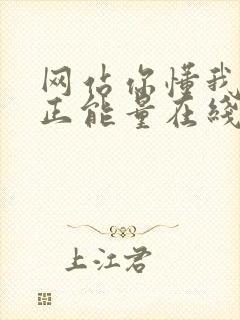 网站你懂我
正能量在线
上江君